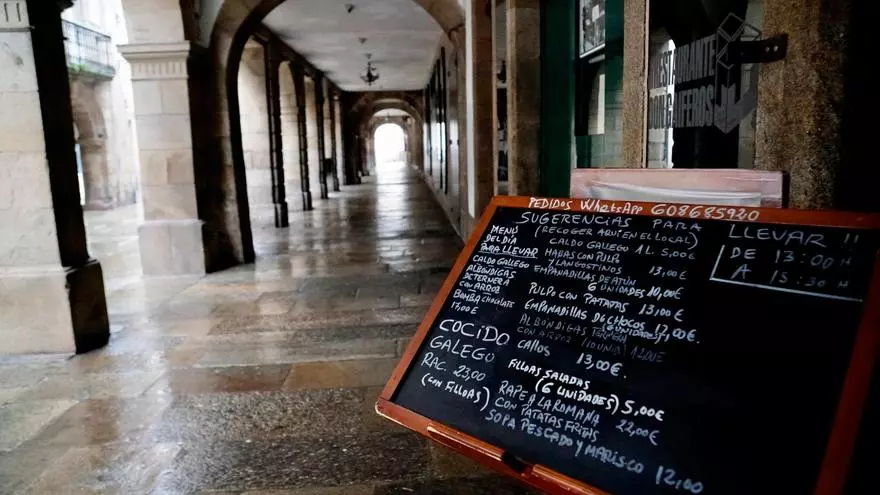 RESTAURANTE
DON GAIFEROS
PEDIDOS WHATSAPP 608685920
SUGERENCIAS PARA LLEVAR !!
(RECOGER AQUI EN EL LOCAL)
DE 13:00H
A 15:30H
MENÚ
DEL DÍA
PARA LLEVAR
CALDO GALLEGO
ALBONDIGAS
DE TERNERA
CON ARROZ
BOMBA CHOCOLATE
13,00€
COCIDO
GALEGO
RAC. 23,00
(CON FILLOAS)
CALDO GALLEGO 1L. 5,00€
HABAS CON PULPO
Y LANGOSTINOS 13,00€
EMPANADILLAS DE ATÚN
6 UNIDADES 10,00€
PULPO CON PATATAS 13,00€
EMPANADILLAS DE CHOCOS
(6 UNIDADES) 12,00€
ALBONDIGAS TERNERA
CON ARROZ 12,00€
CALLOS 13,00€
FILLOAS SALADAS
(6 UNIDADES) 5,00€
RAPE A LA ROMANA
CON PATATAS FRITAS 22,00€
SOPA PESCADO Y MARISCO
12,00